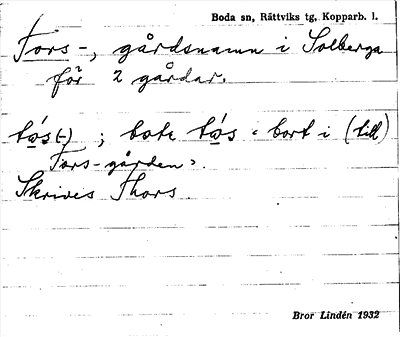 Boda sn, Rättviks tg, Kopparb. l.
Tors-, gårdsnamn i Solberga
för 2 gårdar.
tǫ́s(-) ; bote tǫ́s ‹ bort i (till)
Tors-gården›.
Skrives Thors.
Bror Lindén 1932